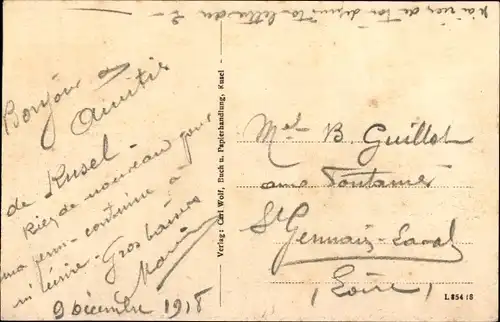 Bonjour &
Amitié
de Kusel -
Rien de nouveau pour
ma perm - continue à
m'écrire - Gros baisers
9 Décembre 1918
Verlag: Carl Wolf, Buch u. Papierhandlung, Kusel -
B. Guillot
aux Fontaines
St Germain-Laval
(Loire)
L 854 18